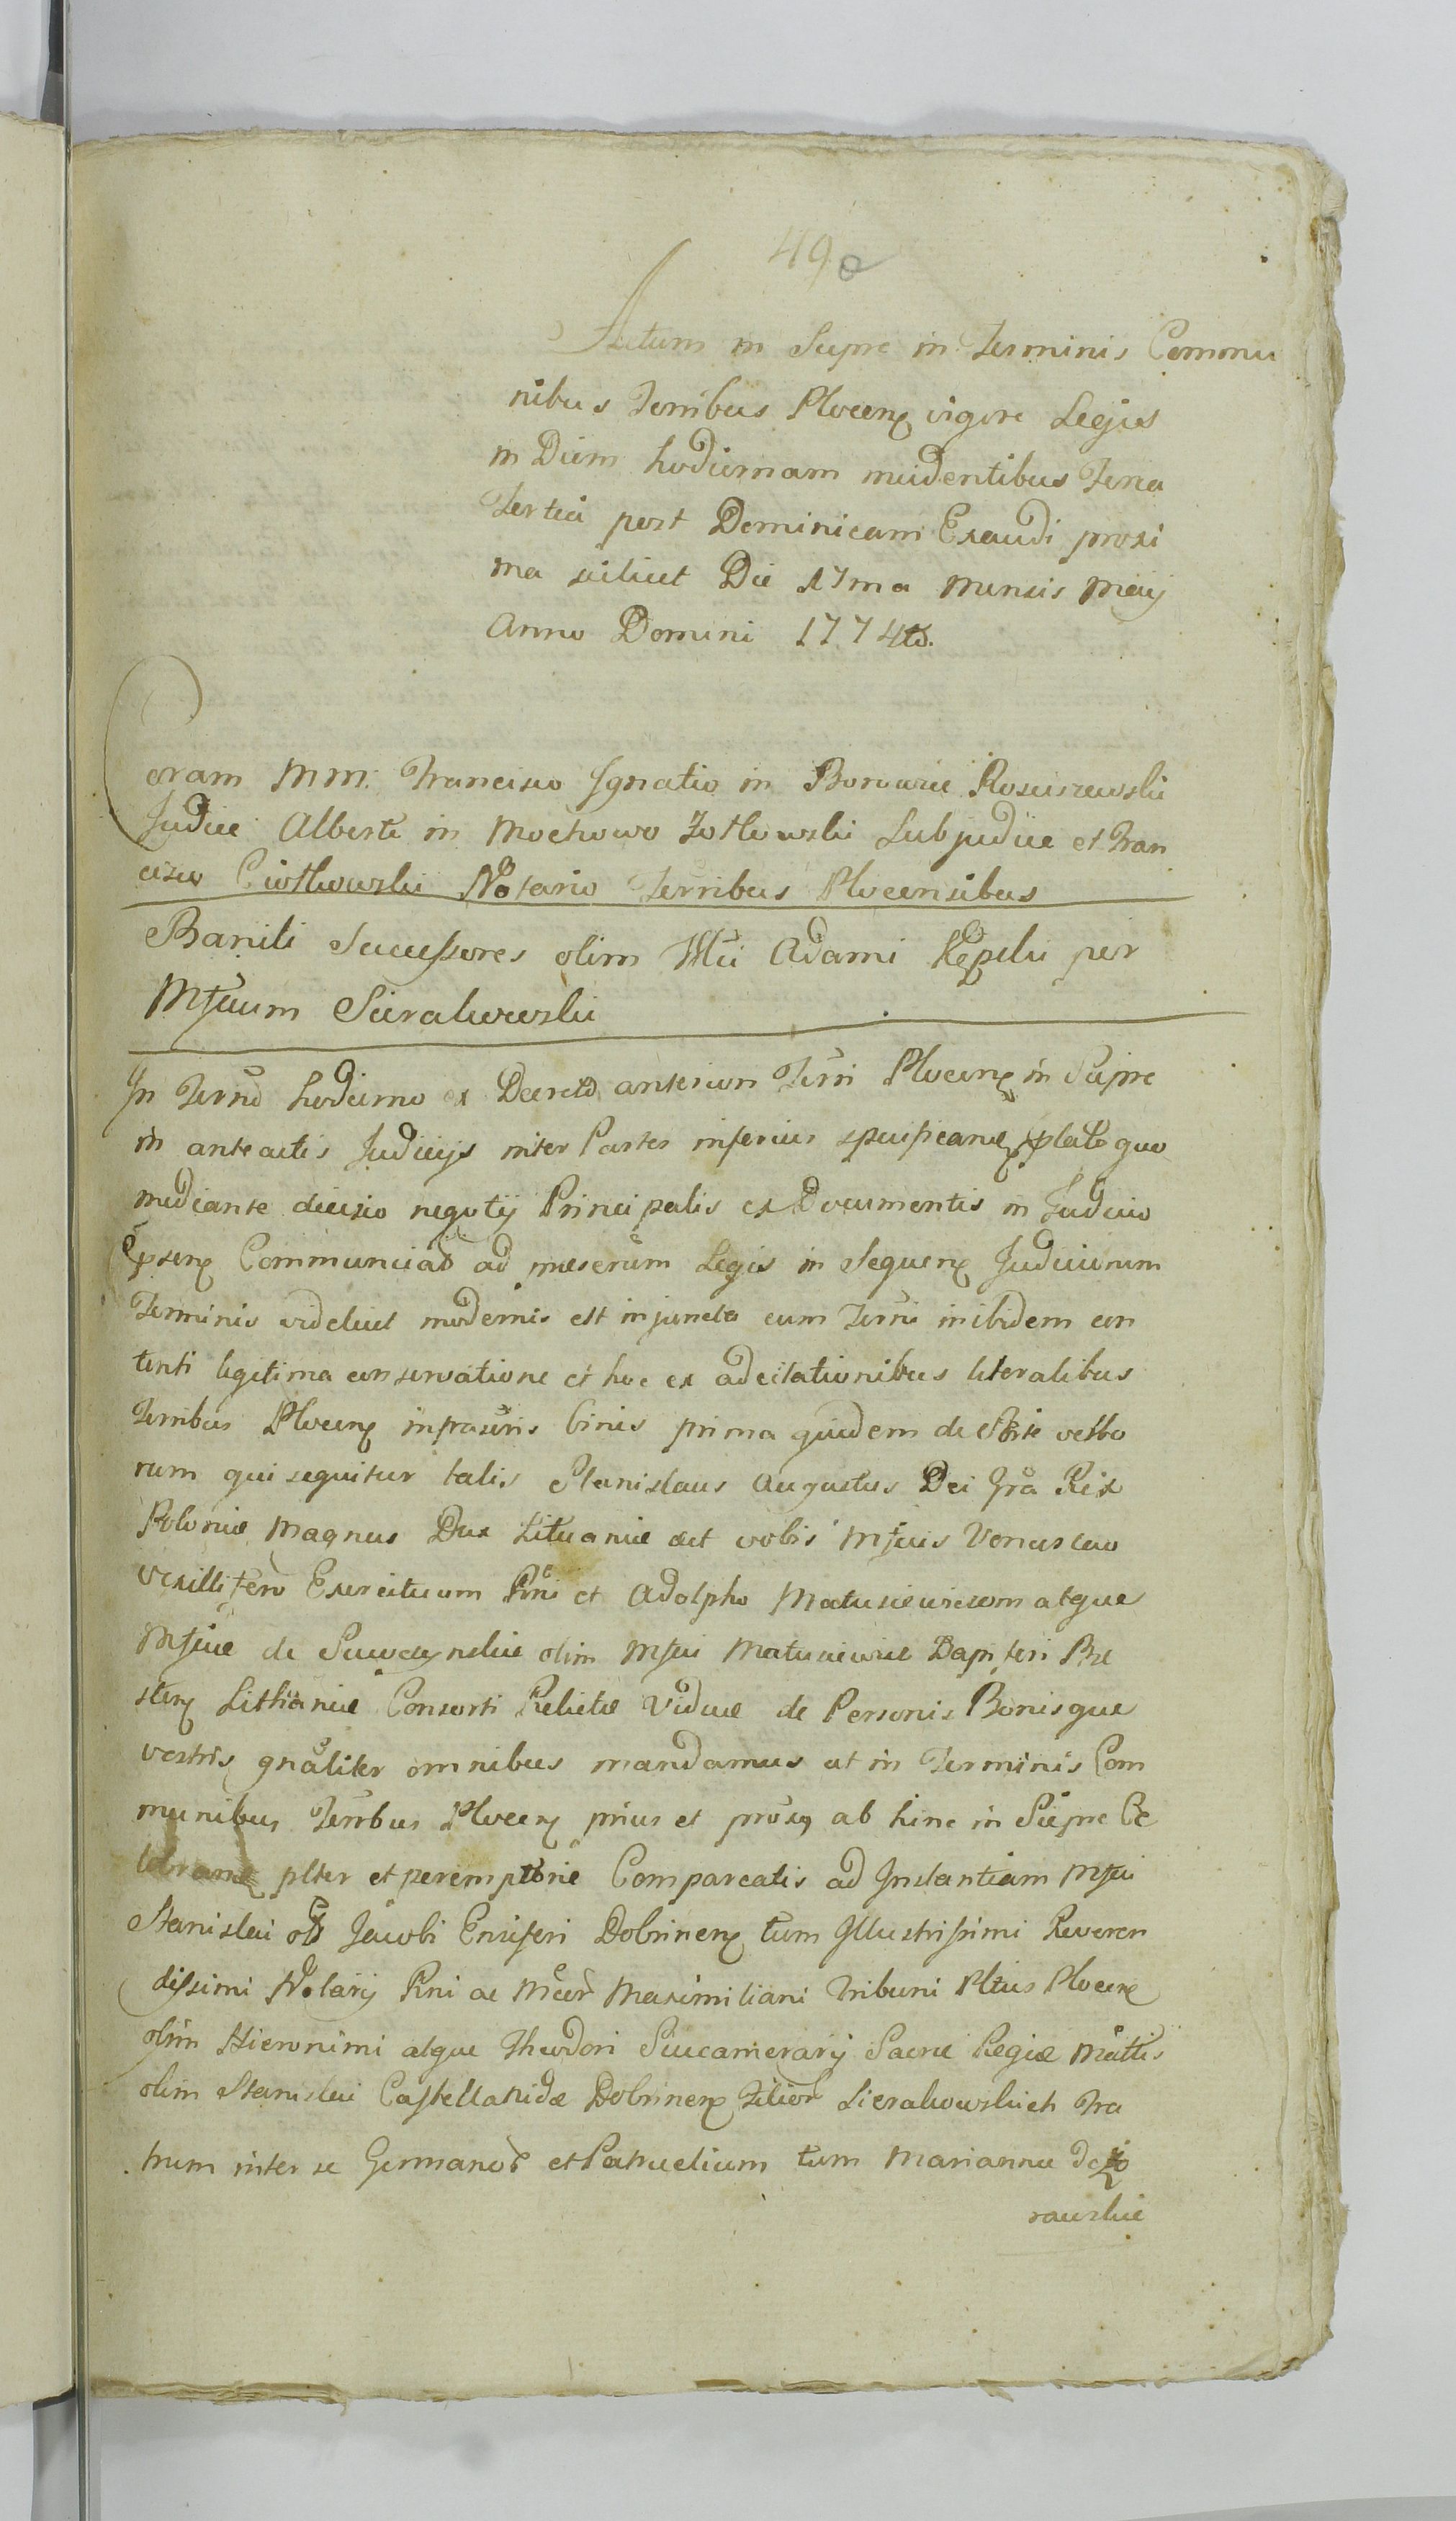 49
Actum in Sierpc in Terminis Commu
nibus Terribus Plocen vigore Legis
in Diem hodiernam incidentibus Feria
Tertia post Dominicam Exaudi proxi
ma scilicet Die 17ma Mensis Maij
Anno Domini 1774to.
Coram MM. Francisco Ignatio in Borowice Rosciszewski
Judice Alberto in Mochowo Zotkowski Subjudice et Fran
cisco Ciotkowski Notario Terribus Plocensibus
Baniti Successores olim Mci Adami Kępski per
Mfcum Sierakowski
In Terno hodierno ex Decreto anteriori Terri Plocen in Sierpc
in anteactis Judicijs inter Partes inferius specifican lato quo
mediante decisio negotij Principalis ex Documentis in Judicio
Communicat ad Legis in Sequen Judiciorum
Terminis videlicet modernis est injuncta cum Terni inibidem con
tenti legitima conservatione et hoc ex adcitationibus literalibus
Terribus Plocen infrascris binis prima quidem de verbo
rum qui sequitur talis Stanislaus Augustus Dei Gra Rex
Poloniæ Magnus Dux Lituaniæ etct vobis Mfcis Venceslao
Vexillifero Exercituum Rni et Adolpho Matusiewiczom atque
Mfcæ de olim Mfci Matusiewicz Dapiferi Brze
sten Lithuaniæ Consorti Relictæ Viduæ de Personis Bonisque
vestris gnaliter omnibus mandamus ut in Terminis Com
munibus Terrbus Plocen prius et prosq ab hinc in Sierpc Ce
lebran plter et peremptorie Compareatis ad Instantiam Mfci
Stanislai olim Jacobi Ensiferi Dobrinen tum Illustrissimi Reveren
dissimi Notarij Rni ac Maximiliani Tribuni Pltus Plocen
olim Hieronimi atque Theodori Succamerarij Sacræ Regiæ Mattis
olim Stanislai Castellanidæ Dobrinen Filior Sierakowskich Fra
trum inter se Germanor et Patruelium tum Mariannæ de Zo
rawskie